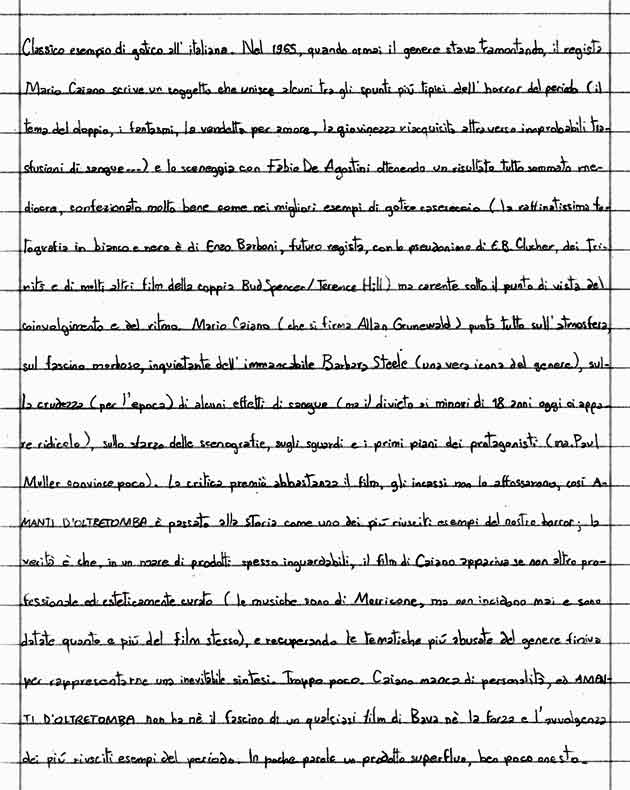 Classico esempio di gotico all'italiana. Nel 1965, quando ormai il genere stava tramontando, il regista
Mario Caiano scrive un soggetto che unisce alcuni tra gli spunti più tipici dell'horror del periodo (il
tema del doppio, i fantasmi, la vendetta per amore, la giovinezza riacquisita attraverso improbabili tra-
sfusioni di sangue...) e lo sceneggia con Fabio De Agostini ottenendo un risultato tutto sommato me-
diocre, confezionato molto bene come nei migliori esempi di gotico casereccio (la raffinatissima fo-
tografia in bianco e nero è di Enzo Barboni, futuro regista, con lo pseudonimo di E.B. Clucher, dei Tri-
nità e di molti altri film della coppia Bud Spencer/Terence Hill) ma carente sotto il punto di vista del
coinvolgimento e del ritmo. Mario Caiano (che si firma Allan Grunewald) punta tutto sull'atmosfera,
sul fascino morboso, inquietante dell'immancabile Barbara Steele (una vera icona del genere), sul-
la crudezza (per l'epoca) di alcuni effetti di sangue (ma il divieto ai minori di 18 anni oggi ci appa-
re ridicolo), sullo sfarzo delle scenografie, sugli sguardi e i primi piani dei protagonisti (ma Paul
Muller convince poco). La critica premiò abbastanza il film, gli incassi non lo affossarono, così A-
MANTI D'OLTRETOMBA è passato alla storia come uno dei più riusciti esempi del nostro horror; la
verità è che, in un mare di prodotti spesso inguardabili, il film di Caiano appariva se non altro pro-
fessionale ed esteticamente curato (le musiche sono di Morricone, ma non incidono mai e sono
datate quanto e più del film stesso), e recuperando le tematiche più abusate del genere finiva
per rappresentarne una inevitabile sintesi. Troppo poco. Caiano manca di personalità, ed AMAN-
TI D'OLTRETOMBA non ha nè il fascino di un qualsiasi film di Bava nè la forza e l'avvolgenza
dei più riusciti esempi del periodo. In poche parole un prodotto superfluo, ben poco onesto.